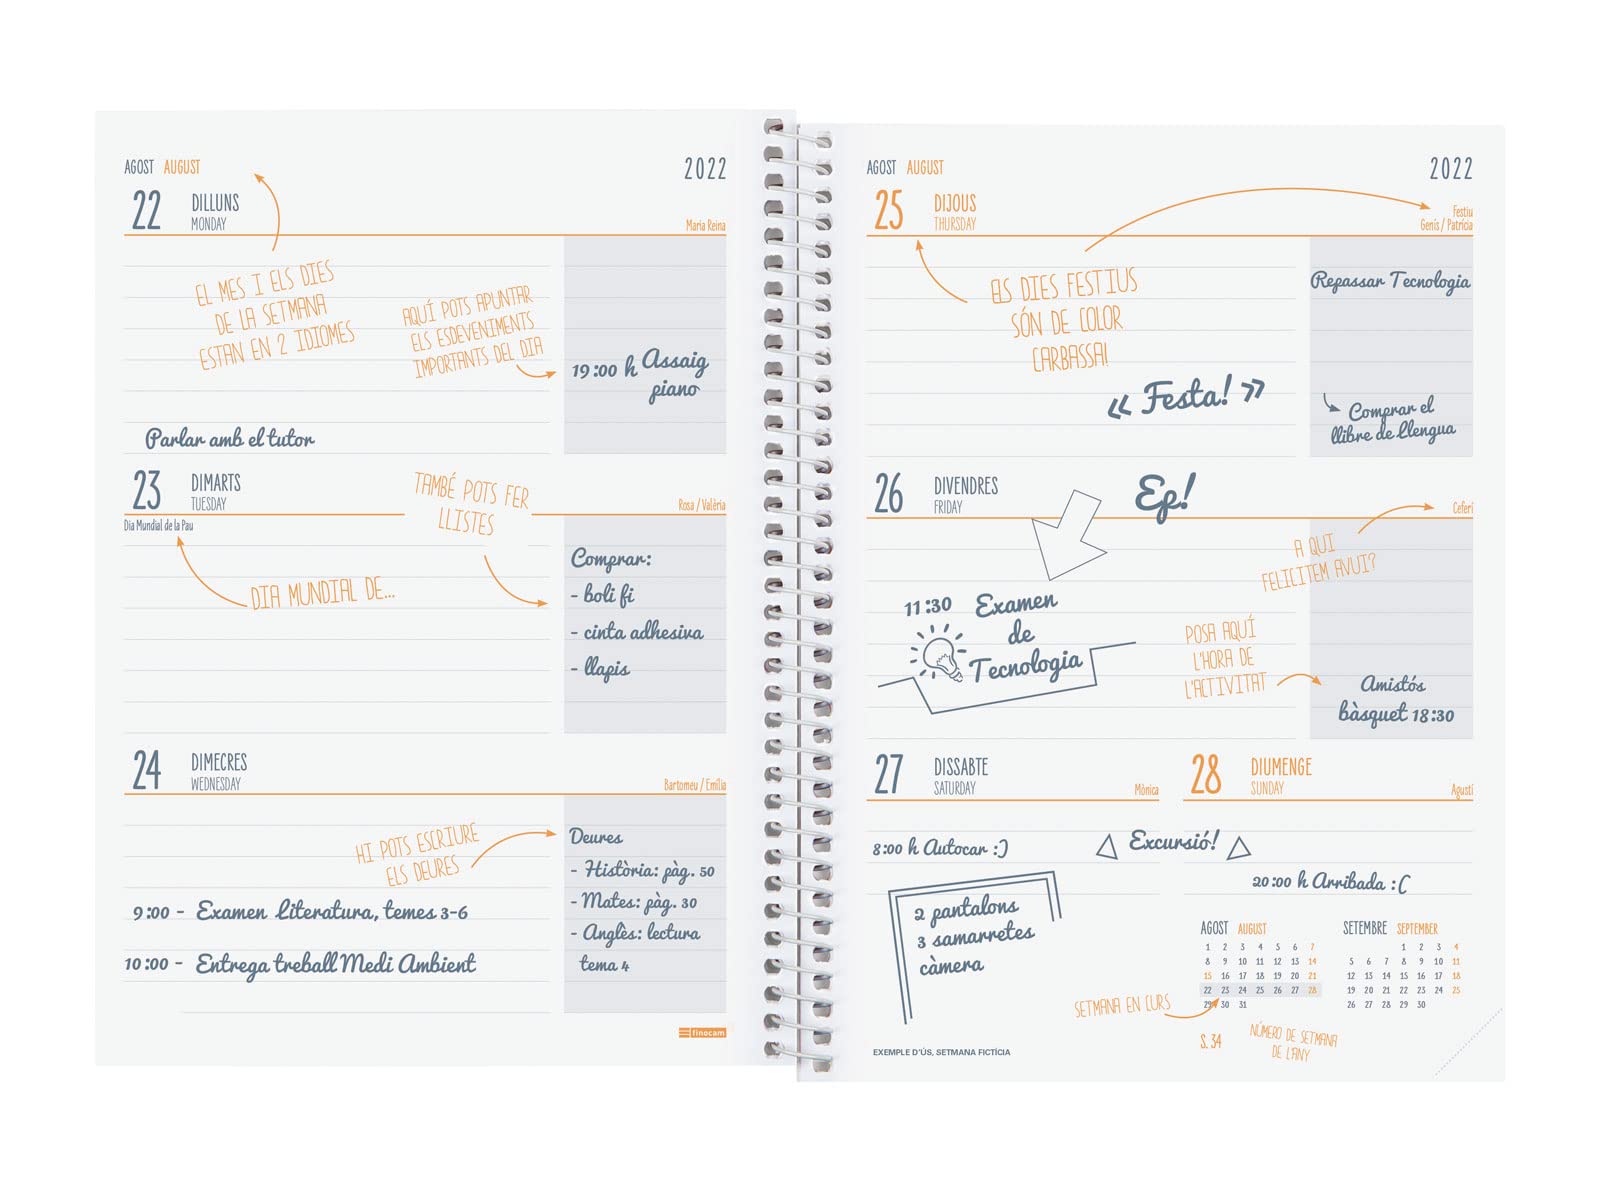 AGOST AUGUST
2022
22 DILLUNS
MONDAY
Maria Reina
EL MES I ELS DIES
DE LA SETMANA
ESTAN EN 2 IDIOMES
AQUÍ POTS APUNTAR
ELS ESDEVENIMENTS
IMPORTANTS DEL DIA
19:00 h Assaig
piano
Parlar amb el tutor
23 DIMARTS
TUESDAY
Rosa / Valèria
Dia Mundial de la Pau
TAMBÉ POTS FER
LLISTES
DIA MUNDIAL DE...
Comprar:
- boli fi
- cinta adhesiva
- llapis
24 DIMECRES
WEDNESDAY
Bartomeu / Emília
HI POTS ESCRIURE
ELS DEURES
9:00 - Examen Literatura, temes 3-6
10:00 - Entrega treball Medi Ambient
Deures
- Història: pàg. 50
- Mates: pàg. 30
- Anglès: lectura
tema 4
finocam
AGOST AUGUST
2022
25 DIJOUS
THURSDAY
Festiu
Genís / Patrícia
ELS DIES FESTIUS
SÓN DE COLOR
CARBASSA!
« Festa! »
Repassar Tecnologia
Comprar el
llibre de Llengua
26 DIVENDRES
FRIDAY
Ep!
Ceferí
A QUI
FELICITEM AVUI?
11:30 Examen
de
Tecnologia
POSA AQUÍ
L'HORA DE
L'ACTIVITAT
Amistós
bàsquet 18:30
27 DISSABTE
SATURDAY
Mònica
28 DIUMENGE
SUNDAY
Agustí
8:00 h Autocar :)
Excursió!
20:00 h Arribada :(
2 pantalons
3 samarretes
càmera
AGOST AUGUST
1 2 3 4 5 6 7
8 9 10 11 12 13 14
15 16 17 18 19 20 21
22 23 24 25 26 27 28
29 30 31
SETEMBRE SEPTEMBER
1 2 3 4
5 6 7 8 9 10 11
12 13 14 15 16 17 18
19 20 21 22 23 24 25
26 27 28 29 30
SETMANA EN CURS
S. 34
NÚMERO DE SETMANA
DE L'ANY
EXEMPLE D'ÚS, SETMANA FICTÍCIA